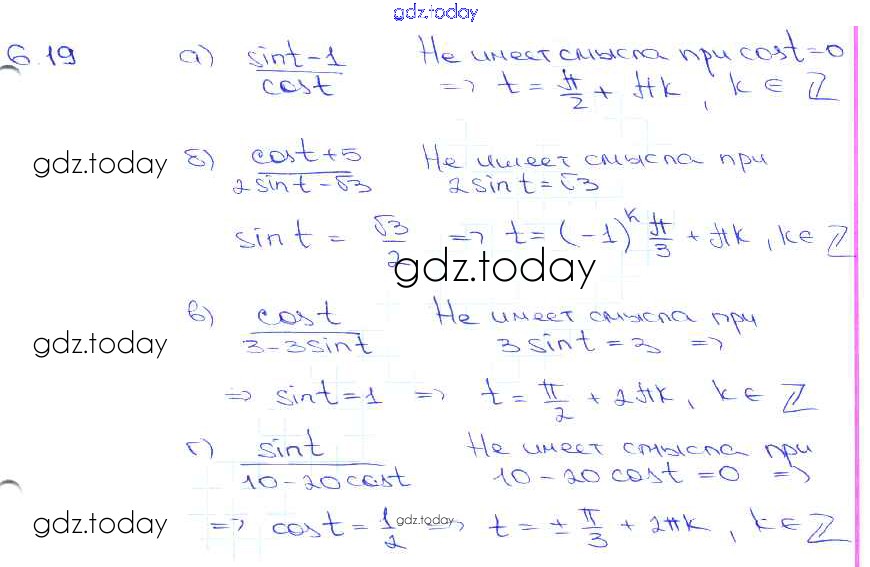 gdz.today
6.19 а) (sint-1)/cost Не имеет смысла при cost=0
=> t = π/2 + πk, k ∈ ℤ
gdz.today б) (cost+5)/(2sint-√3) Не имеет смысла при
2sint=√3
sint = √3/2 => t=(-1)^k π/3 + πk, k∈ℤ
gdz.today
в) cost/(3-3sint) Не имеет смысла при
gdz.today 3sint=3 =>
=> sint=1 => t = π/2 + 2πk, k∈ℤ
г) sint/(10-20cost) Не имеет смысла при
10-20cost=0 =>
gdz.today => cost=1/2 gdz.today => t = ± π/3 + 2πk, k∈ℤ